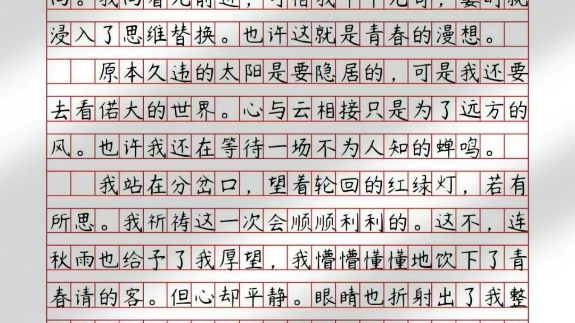 向着光前进，可惜我平平无奇，霎时就
浸入了思维替换。也许这就是青春的漫想。
原本久违的太阳是要隐居的，可是我还要
去看偌大的世界。心与云相接只是为了远方的
风。也许我还在等待一场不为人知的蝉鸣。
我站在分岔口，望着轮回的红绿灯，若有
所思。我祈祷这一次会顺顺利利的。这不，连
秋雨也给予了我厚望，我懵懵懂懂地饮下了青
春请的客。但心却平静。眼睛也折射出了我整